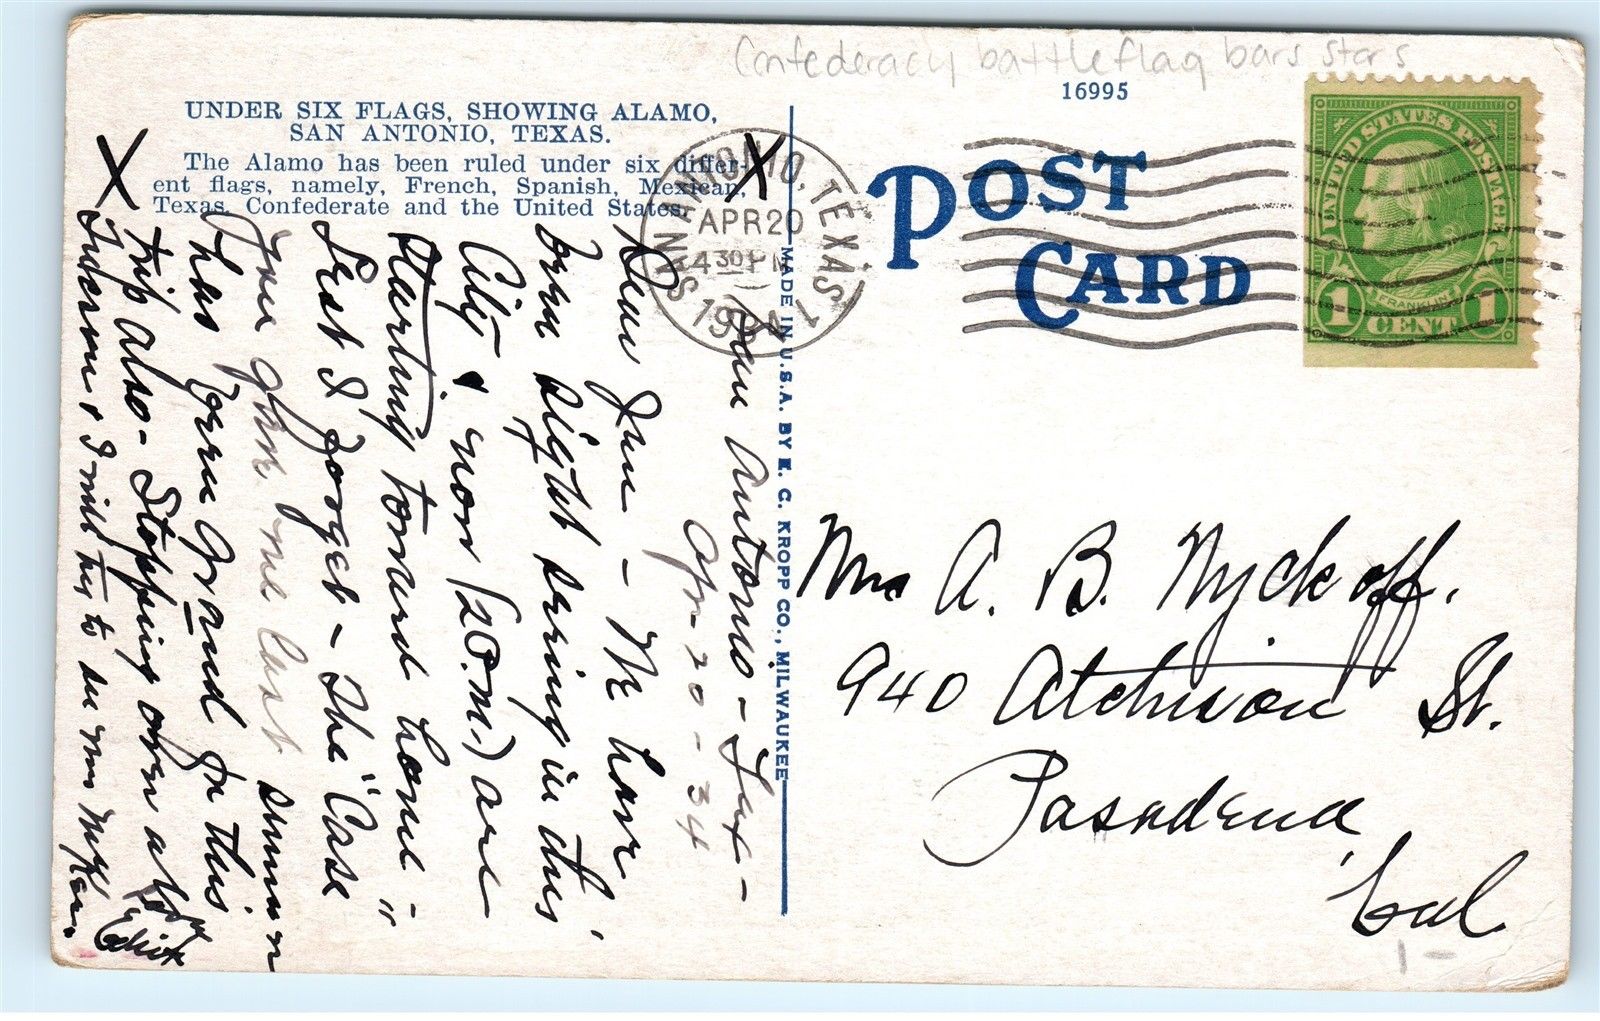 Confederacy battleflag bars stars
16995
UNDER SIX FLAGS, SHOWING ALAMO,
SAN ANTONIO, TEXAS.
The Alamo has been ruled under six differ-
ent flags, namely, French, Spanish, Mexican,
Texas, Confederate and the United States.
SAN ANTONIO, TEXAS 1
APR 20
4 30 PM
POST
CARD
UNITED STATES POSTAGE
FRANKLIN
1 CENT 1
MADE IN U.S.A. BY E. C. KROPP CO., MILWAUKEE
San Antonio - Tex -
Apr - 20 - 34
Dear June - We have
been sight seeing in this
City & now (2 P.M.) are
starting toward home -
Lest I forget - The "Case"
you gave me last summer
has been grand for this
trip also - Stopping over a day
Tucson & I will try to see Mrs
X
X
Edith
Mrs A. B. Wyckoff.
940 Atchison St.
Pasadena,
Cal
1 -